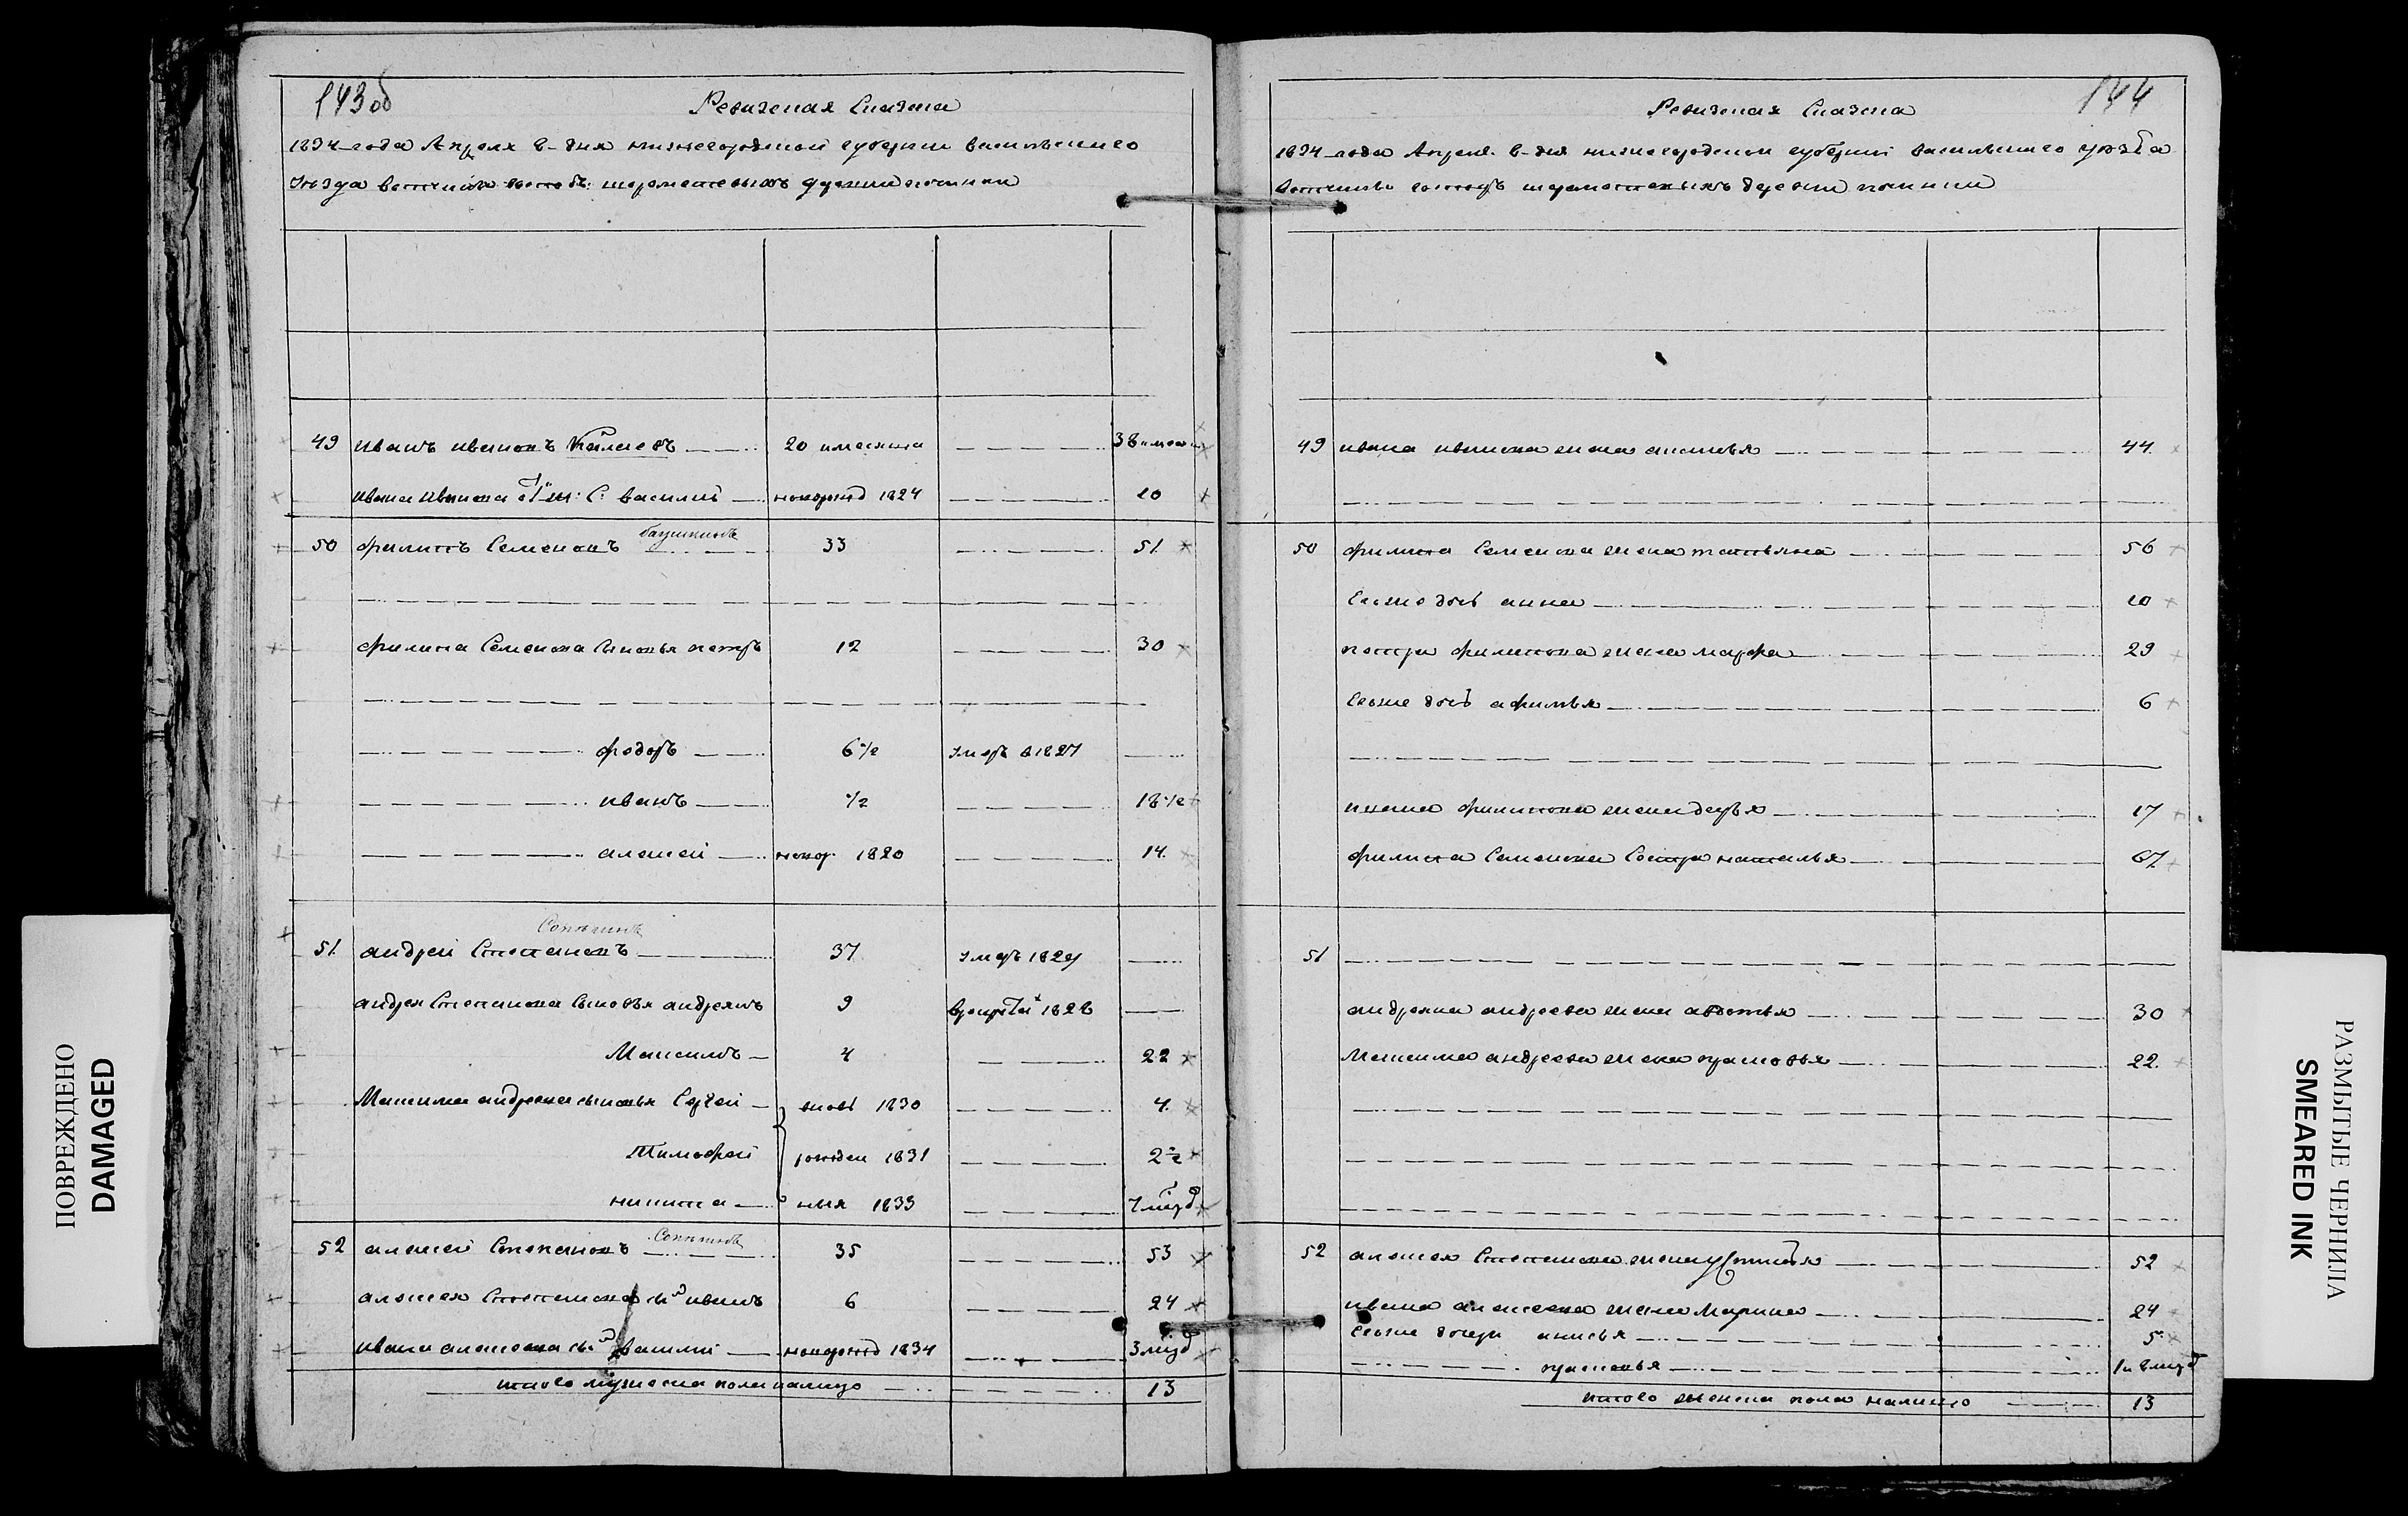 143 об
Ревизская Сказка
1834 года Апреля 8 дня нижегородской губернии васильского
уезда вотчины господъ шереметевыхъ деревни
49 иванъ ивановъ 20 38
ивана иванова василий новорожд 1824 10
50 филипъ Семеновъ 33 51
филипа Семенова сыновья петръ 12 30
федоръ 6 ½ умеръ в 1827
иванъ ½ 18 ½
алексей новор. 1820 14
51 андрей Степановъ 37 умеръ 1829
андрея Степанова сыновья андреянъ 9 1828
Максимъ 4 22
Максима андреева сыновья Сергей вновь 1830 4
Тимофей рожден 1831 2 ½
никита ныя 1833 7 мес
52 алексей Степановъ 35 53
алексея Степанова сынъ иванъ 6 24
ивана алексеева сынъ василий новорожд 1834 3 мес
итого мужеска пола налицо 13
144
Ревизская Сказка
1834 года Апреля 8 дня нижегородской губернии васильского уезда
вотчины господъ шереметевыхъ деревни
49 ивана иванова жена 44
50 филипа Семенова жена татьяна 56
ихъ дочь анна 10
петра филипова жена марфа 29
ихже дочь афимья 6
ивана филипова жена дарья 17
филипа Семенова Сестра наталья 67
51
андреяна андреева жена авдотья 30
Максима андреева жена прасковья 22
52 алексея Степанова жена устинья 52
ивана алексеева жена Марина 24
ихже дочери анисья 5
прасковья 1 и 8 мес
итого женска пола налицо 13
ПОВРЕЖДЕНО
DAMAGED
РАЗМЫТЫЕ ЧЕРНИЛА
SMEARED INK